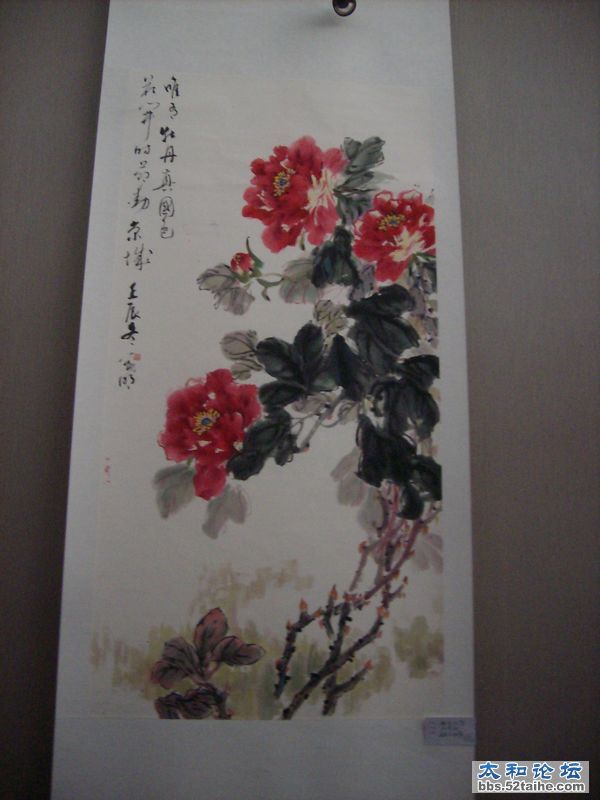 唯有牡丹真國色
花開時節動京城
壬辰冬
太和论坛
bbs.52taihe.com